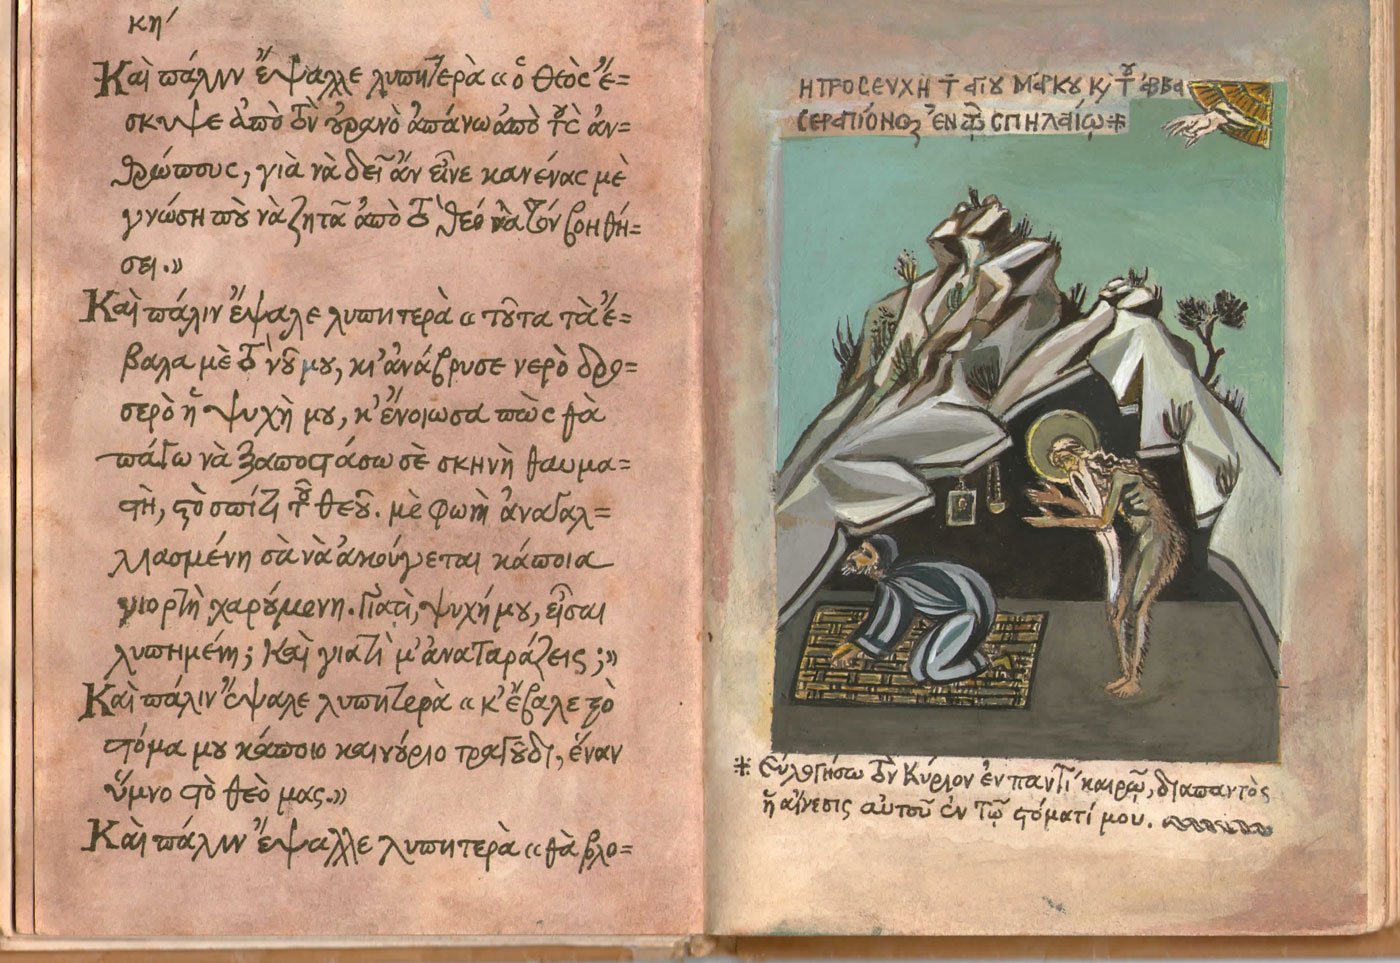 κη´
Καὶ πάλιν ἔψαλλε λυπητερὰ «ὁ θεὸς ἔ=
σκυψε ἀπὸ τὸν οὐρανὸ ἀπάνω ἀπὸ τοὺς ἀν=
θρώπους, γιὰ νὰ δεῖ ἂν εἶνε κανένας μὲ
γνώση ποὺ νὰ ζητᾶ ἀπὸ τὸ θεό νὰ τὸν βοηθή=
σει.»
Καὶ πάλιν ἔψαλε λυπητερὰ «τοῦτα τὰ ἔ=
βαλα μὲ τὸ νοῦ μου, κι' ἀνάβρυσε νερὸ δρο=
σερὸ ἡ ψυχὴ μου, κ' ἔνοιωσα πὼς θὰ
πάγω νὰ ξαποστάσω σὲ σκηνὴ θαυμα=
στὴ, στὸ σπίτι τοῦ θεοῦ. μὲ φωνὴ ἀναγαλ=
λιασμένη σὰ νὰ ἀκούγεται κάποια
γιορτὴ χαρούμενη. Γιατὶ, ψυχή μου, εἶσαι
λυπημένη; Καὶ γιατὶ μ' ἀναταράζεις;»
Καὶ πάλιν ἔψαλε λυπητερὰ «κ' ἔβαλε στὸ
στόμα μου κάποιο καινούριο τραγοῦδι, ἕναν
ὕμνο στὸ θεὸ μας.»
Καὶ πάλιν ἔψαλλε λυπητερὰ «θὰ βλο=
Η ΠΡΟΣΕΥΧΗ τοῦ ἁγίου Μάρκου κὶ τοῦ ἀββᾶ
Σεραπίονος ἐν τῷ σπηλαίῳ *
* Εὐλογήσω τὸν Κύριον ἐν παντὶ καιρῷ, διαπαντὸς
ἡ αἴνεσις αὐτοῦ ἐν τῷ στόματί μου.